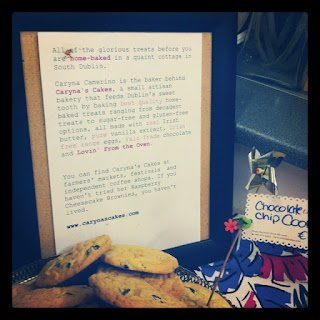 All of the glorious treats before you
are home-baked in a quaint cottage in
South Dublin.
Caryna Camerino is the baker behind
Caryna's Cakes, a small artisan
bakery that feeds Dublin's sweet
tooth by baking best quality home-
baked treats ranging from decadent
treats to sugar-free and gluten-free
options, all made with real Irish
butter, pure vanilla extract, Irish
free range eggs, fair trade chocolate
and Lovin' From the Oven.
You can find Caryna's Cakes at
farmers' markets, festivals and
independent coffee shops. If you
haven't tried her Raspberry
Cheesecake Brownies, you haven't
lived.
www.carynascakes.com
Chocolate
Chip Coo
€